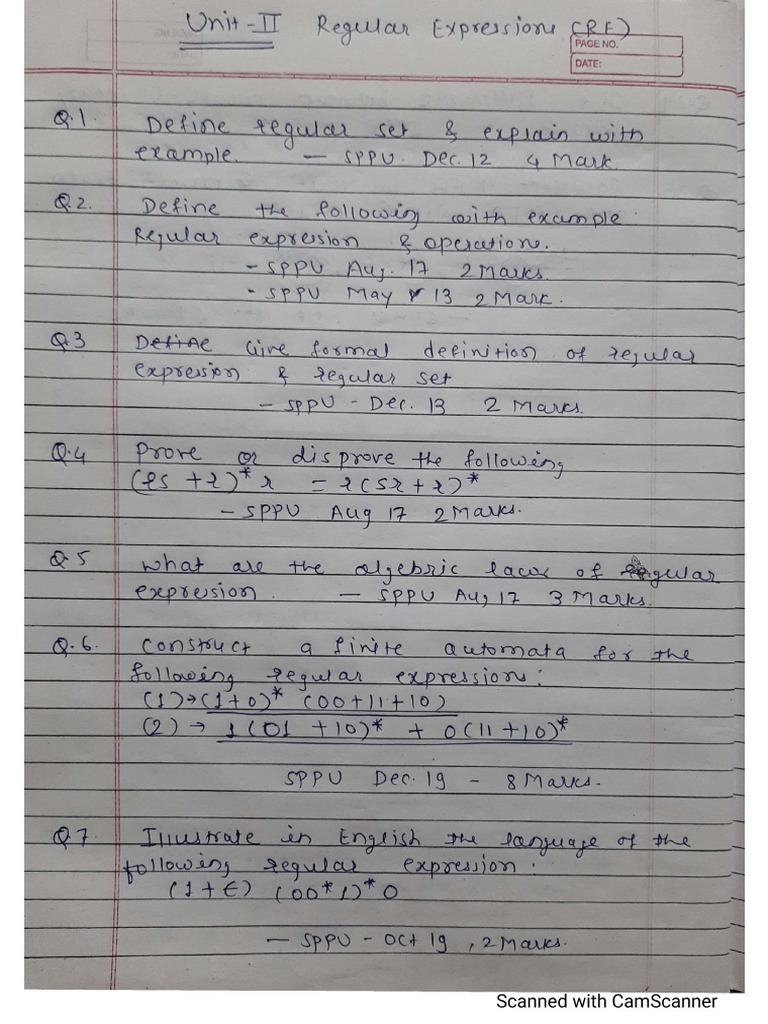 Unit-II Regular Expressions (RE)
PAGE NO.
DATE:
Q.1. Define regular set & explain with
example. — SPPU. Dec.12 4 Mark
Q.2. Define the following with example:
Regular expression & operation.
- SPPU Aug. 17 2 Marks
- SPPU May 13 2 Mark.
Q.3 Define Give formal definition of regular
expression & regular set
- SPPU - Dec. 13 2 Marks.
Q.4 Prove or disprove the following
(rs + r)* r = r(sr + r)*
- SPPU Aug 17 2 Marks.
Q.5 what are the algebric laws of regular
expression. — SPPU Aug 17 3 Marks.
Q.6. construct a finite automata for the
following regular expressions:
(1)→(1+0)* (00+11+10)
(2)→ 1(01 +10)* + 0(11+10)*
SPPU Dec. 19 - 8 Marks.
Q.7. Illustrate in English the language of the
following regular expression:
(1+ε) (00*1)*0
— SPPU - Oct 19, 2 Marks.
Scanned with CamScanner